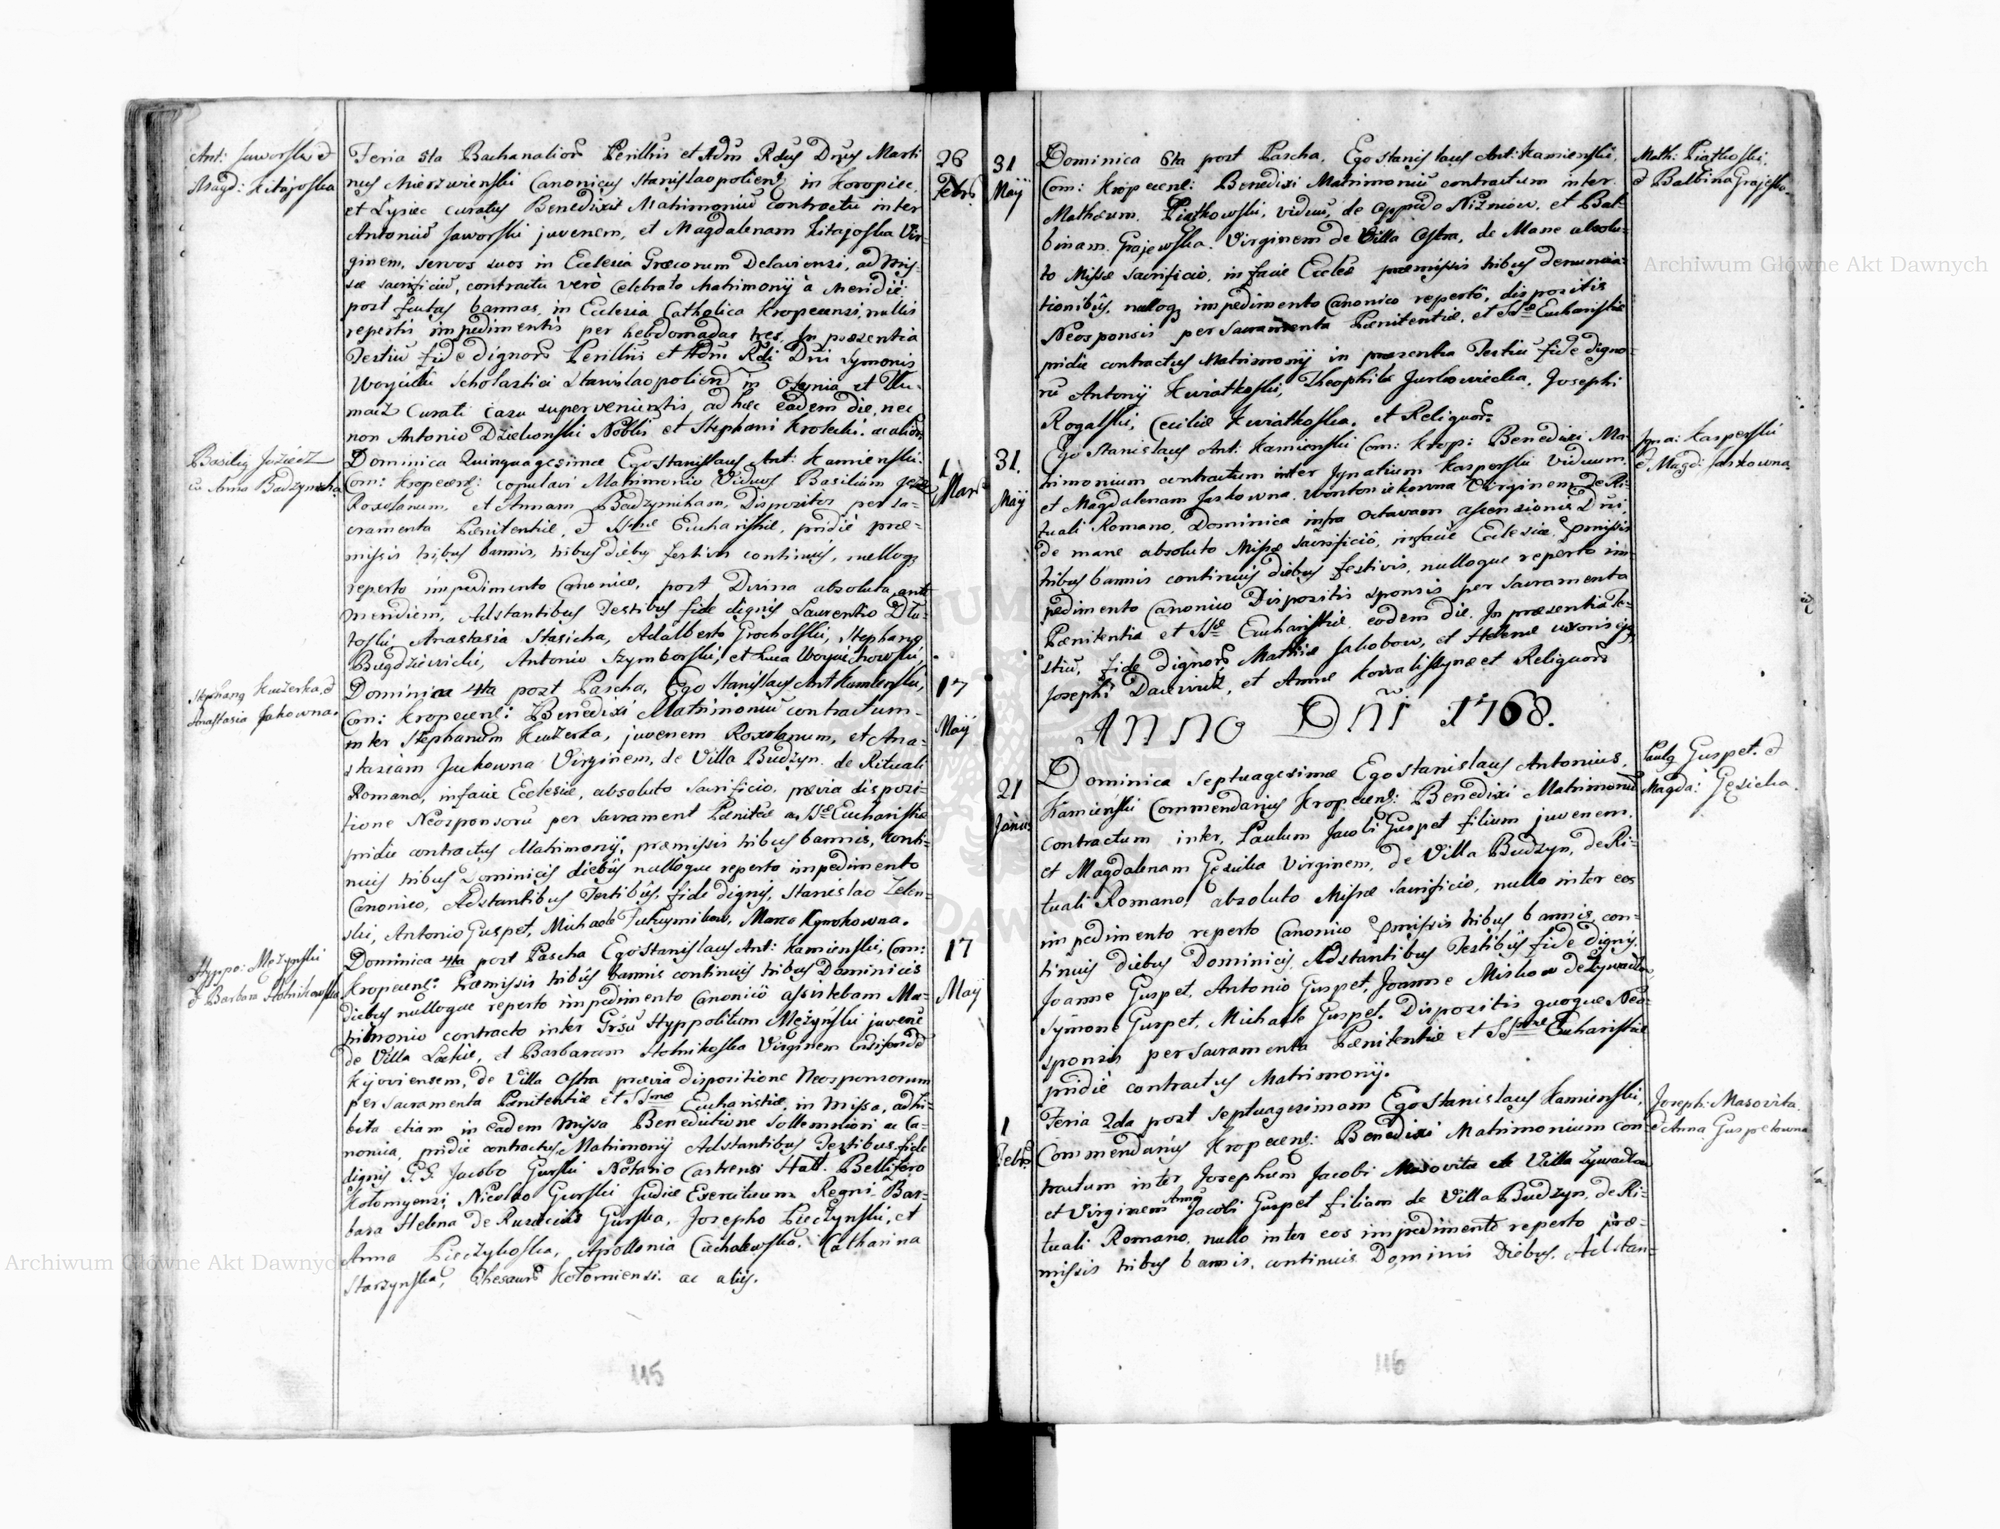 Ant: Jaworski et
Magd: Kitajoska
Feria 5ta Bachanalior̄ Perillris et Adm̄ Rd̄us Dn̄us Marti
nus Canonicus Stanislaopolien: in Koropiec
et Łysiec curatus Benedixit Matrimoniū contractū inter
Antoniū Jaworski juvenem, et Magdalenam Kitajoska Vir-
ginem, servos suos in Ecclesia Græcorum Delaviensi, ad Mis-
sæ sacrificiū, contractu verò celebrato Matrimonij à Meridie
post bannas, in Ecclesia Catholica Kropecensi, nullis
repertis impedimentis per hebdomadas tres. In præsentia
Testiū fide dignor̄ Perillris et Adm̄ Rd̄i Dn̄i Symonis
Woyciki Scholastici Stanislaopolien: in Otynia et
Curati casu supervenientis ad hæc eadem die, nec
non Antonio Nobili et Stephani Krotecki. ac alior̄
26
Febr:
Basiliq
cū Anna Budzynicha
Dominica Quinquagesimæ Ego Stanislaus Ant: Kamienski
Com: Kropecens: copulavi Matrimonio Viduos Basilium
Roxolanum, et Annam Budzynicham, Dispositos per sa-
cramenta Pænitentiæ, et SSmæ Eucharistiæ, pridie præ-
missis tribus bannis, tribus diebus festivis continuis, nulloq3
reperto impedimento Canonico, post Divina absoluta ante
meridiem, Adstantibus Testibus fide dignis Laurentio Dłu-
toski, Anastasia Stasicha, Adalberto Grocholski, Stephano
Bugdziewicki, Antonio Szymborski, et Luca Woyciechowski
1
Mar:
Stephanq Kuzerka, et
Anastasia Jakowna.
Dominica 4ta post Pascha, Ego Stanislaus Ant Kamienski,
Com: Kropecens: Benedixi Matrimoniū contractum
inter Stephanum Kuzerka, juvenem Roxolanum, et Ana-
stasiam Jackowna Virginem, de Villa Budzyn. de Rituali
Romano, in facie Ecclesiæ, absoluto sacrificio, prævia disposi-
tione Neosponsorū per sacrament Pænitæ ac SSæ Eucharistiæ
pridie contractus Matrimonij, præmissis tribus bannis, conti-
nuis tribus Dominicis diebus nulloque reperto impedimento
Canonico, Adstantibus Testibus, fide dignis, Stanislao Zelen-
ski, Antonio Guspet, Michaele
17
Maij
Hyppo: Mężynski
et Barbara Stolnikoska
Dominica 4ta post Pascha Ego Stanislaus Ant: Kamienski, Com:
Kropecens: Præmissis tribus bannis continuis tribus Dominicis
diebus nulloque reperto impedimento Canonico assistebam Ma-
trimonio contracto inter Grsū Hyppolitum Mężynski juvenē
de Villa Luckie, et Barbaram Stolnikoska Virginem
Kijoviensem, de Villa Ostra prævia dispositione Neosponsorum
per sacramenta Pænitentiæ et SSmæ Eucharistiæ, in Missa, adhi-
bita etiam in eadem Missa Benedictione sollemniori ac Ca-
nonica, pridie contractus Matrimonij Adstantibus Testibus fide
dignis G.G. Jacobo Gurski Notario Castrensi Hali: Bellifero
Kołomyensi, Nicolao Gurski Judice Exercituum Regni, Bar-
bara Helena de Gurska, Josepho Pieczynski, et
Anna Apollonia Ciechelewska, Catharina
Starzynska, Thesaur̄ Kołomiensi, ac alijs.
17
Maij
115
31
Maij
Dominica 6ta post Pascha, Ego Stanislaus Ant: Kamienski,
Com: Kropecens: Benedixi Matrimoniū contractum inter
Mathæum Piatkowski, viduū, de Oppido Niżniow, et Bal-
binam Grajewska Virginem de Villa Ostra, de Mane absolu-
to Missæ sacrificio, in facie Eccles præmissis tribus denuncia-
tionibus, nulloq3 impedimento Canonico repertô, dispositis
Neosponsis per sacramenta Pænitentiæ, et SSæ Eucharistiæ
pridie contractus Matrimonij in præsentia Testiū fide digno-
rū Antonij Kwiatkoski, Theophila Jurkowiecka, Josephi
Rogalski, Ceciliæ Kwiatkoska, et Reliquor̄
Math: Piatkoski,
et Balbina Grajeska
31.
Maij
Ego Stanislaus Ant: Kamienski Com: Krop: Benedixi Ma-
trimonium contractum inter Ignatium Kasperski viduum,
et Magdalenam Jaskowna Virginem, de Ri-
tuali Romano, Dominica infra octavam ascensionis Dn̄i,
de mane absoluto Missæ sacrificiô, in facie Ecclesiæ præmissis
tribus bannis continuis diebus festivis, nulloque reperto im-
pedimento Canonico Dispositis sponsis per sacramenta
Pænitentiæ et SSæ Eucharistiæ eodem die. In præsentia Te-
stiū, fide dignor̄ Mathiæ Jakobow, et Helenæ uxoris ejq
Josephi et Annæ et Reliquor̄
Igna: Kasperski
et Magd: Jaskowna
ANNO Dn̄i 1768.
21
Janu:
Dominica Septuagesimæ Ego Stanislaus Antonius,
Kamienski Commendarius Kropecens: Benedixi Matrimoniū
contractum inter Paulum Jacobi Guspet filium juvenem,
et Magdalenam Gęsicka Virginem, de Villa Budzyn, de Ri-
tuali Romano, absoluto Missæ sacrificio, nullo inter eos
impedimento reperto Canonico præmissis tribus bannis con-
tinuis diebus Dominicis, Adstantibus Testibus fide dignis,
Joanne Guspet, Antonio Guspet, Joanne Miskow de Żywaczow
Symone Guspet, Michaele Guspet. Dispositis quoque Neo-
sponsis per sacramenta Pænitentiæ et SSmæ Eucharistiæ
pridie contractus Matrimonij.
Paulq Guspet. et
Magda: Gęsicka.
1
Febr:
Feria 2da post Septuagesimam Ego Stanislaus Kamienski,
Commendarius Kropecens: Benedixi Matrimonium con-
tractum inter Josephum Jacobi Masovita de Villa Żywaczow
et Virginem Annā Jacobi Guspet filiam de Villa Budzyn, de Ri-
tuali Romano, nullo inter eos impedimentô reperto præ-
missis tribus bannis, continuis Dominicis Diebus, Adstan-
Joseph: Masovita
et Anna Guspetowna
116
Archiwum Główne Akt Dawnych
Archiwum Główne Akt Dawnych